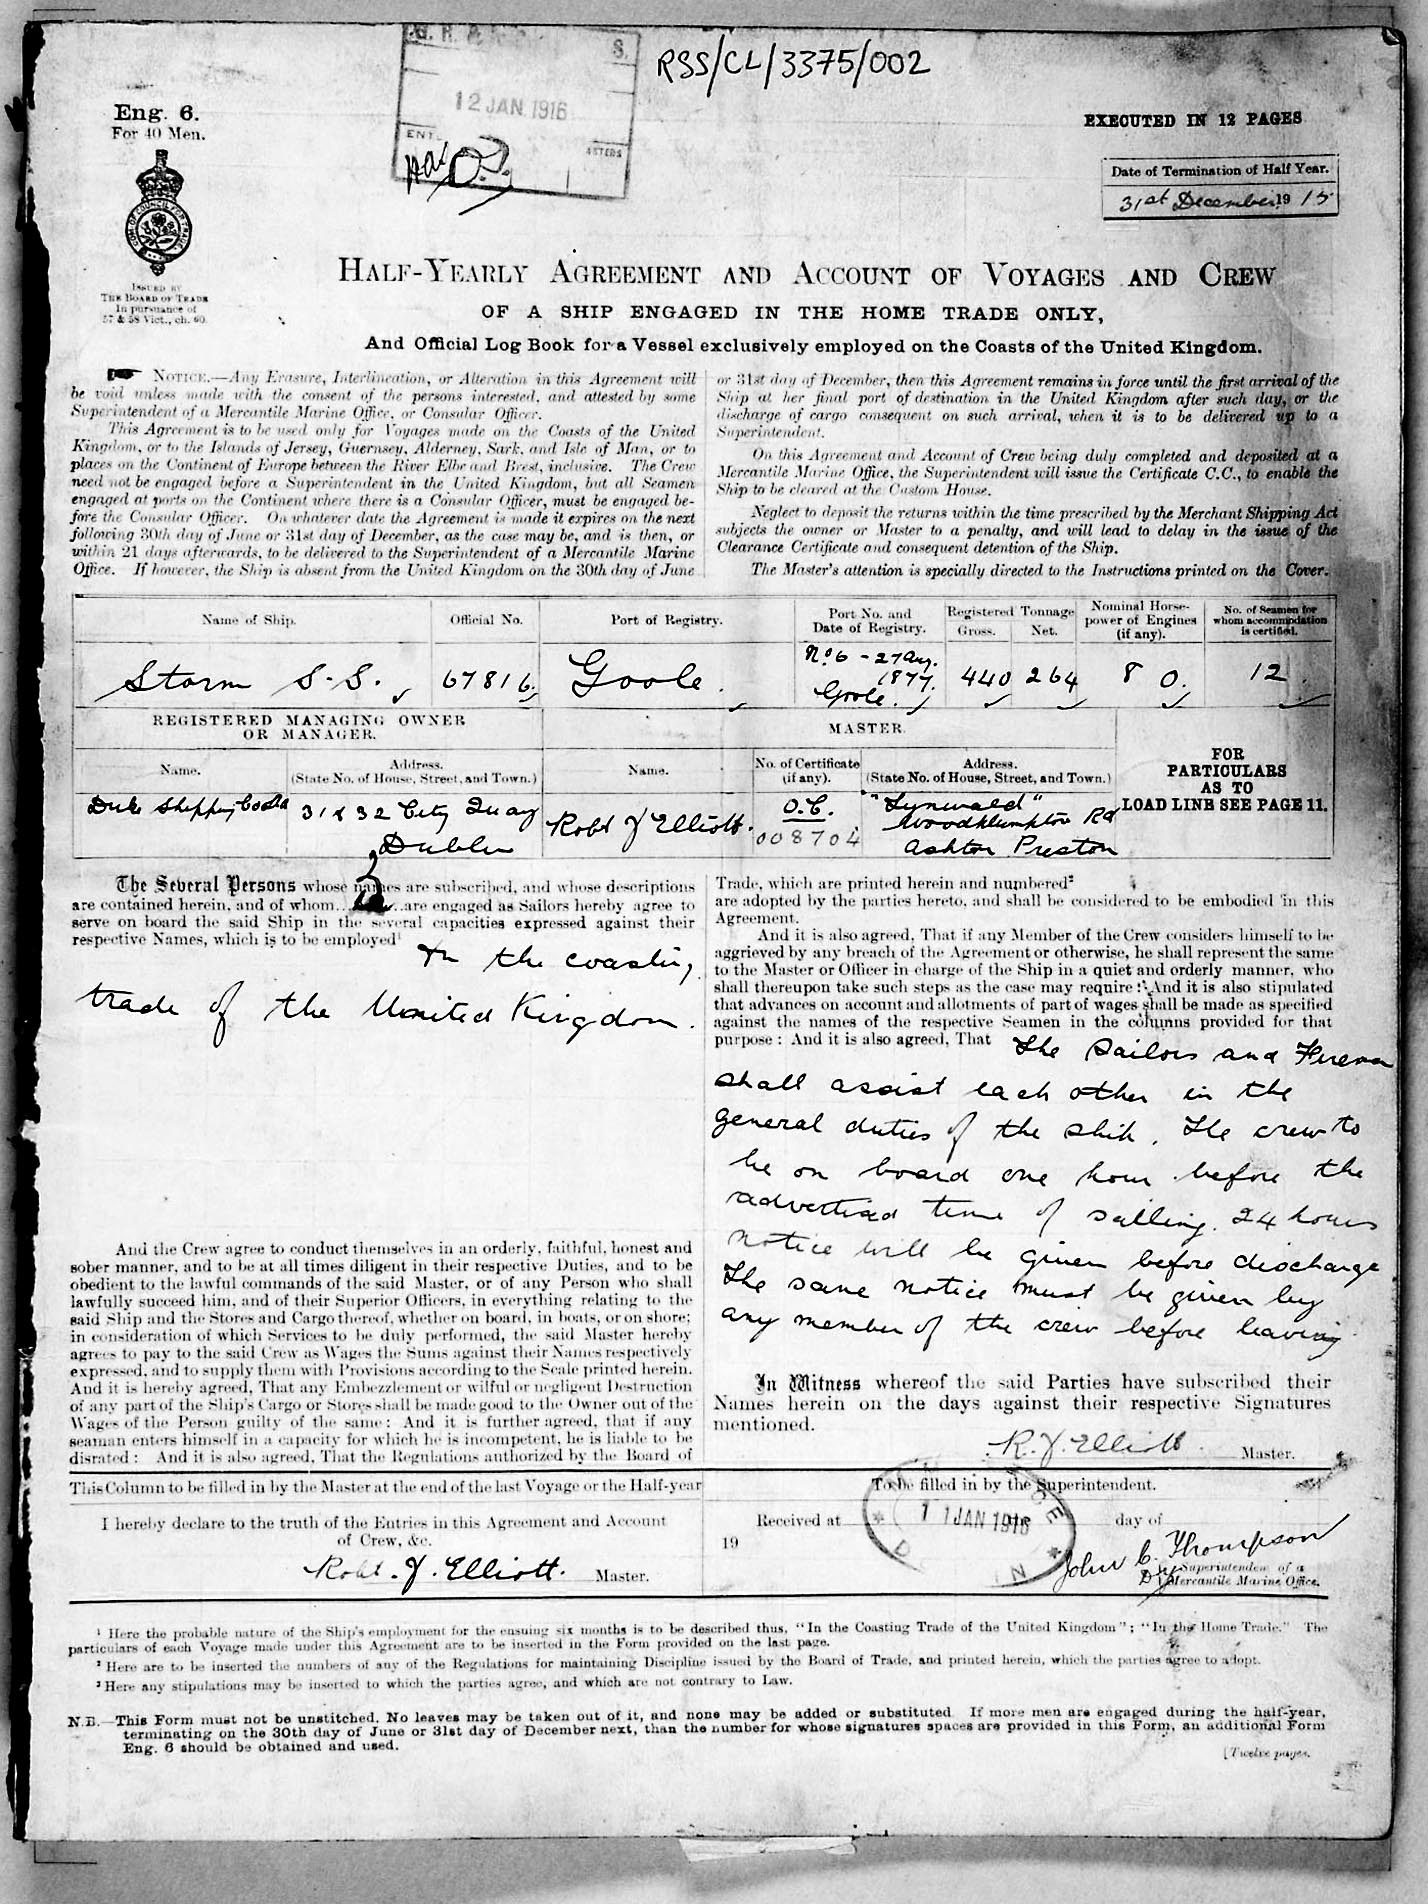 RSS/CL/3375/002
12 JAN 1916
Eng. 6.
For 40 Men.
EXECUTED IN 12 PAGES
Date of Termination of Half Year.
31st December 1915
ISSUED BY
THE BOARD OF TRADE
In pursuance of
57 & 58 Vict., ch. 60.
HALF-YEARLY AGREEMENT AND ACCOUNT OF VOYAGES AND CREW
OF A SHIP ENGAGED IN THE HOME TRADE ONLY,
And Official Log Book for a Vessel exclusively employed on the Coasts of the United Kingdom.
NOTICE.—Any Erasure, Interlineation, or Alteration in this Agreement will
be void unless made with the consent of the persons interested, and attested by some
Superintendent of a Mercantile Marine Office, or Consular Officer.
This Agreement is to be used only for Voyages made on the Coasts of the United
Kingdom, or to the Islands of Jersey, Guernsey, Alderney, Sark, and Isle of Man, or to
places on the Continent of Europe between the River Elbe and Brest, inclusive. The Crew
need not be engaged before a Superintendent in the United Kingdom, but all Seamen
engaged at ports on the Continent where there is a Consular Officer, must be engaged be-
fore the Consular Officer. On whatever date the Agreement is made it expires on the next
following 30th day of June or 31st day of December, as the case may be, and is then, or
within 21 days afterwards, to be delivered to the Superintendent of a Mercantile Marine
Office. If however, the Ship is absent from the United Kingdom on the 30th day of June
or 31st day of December, then this Agreement remains in force until the first arrival of the
Ship at her final port of destination in the United Kingdom after such day, or the
discharge of cargo consequent on such arrival, when it is to be delivered up to a
Superintendent.
On this Agreement and Account of Crew being duly completed and deposited at a
Mercantile Marine Office, the Superintendent will issue the Certificate C.C., to enable the
Ship to be cleared at the Custom House.
Neglect to deposit the returns within the time prescribed by the Merchant Shipping Act
subjects the owner or Master to a penalty, and will lead to delay in the issue of the
Clearance Certificate and consequent detention of the Ship.
The Master's attention is specially directed to the Instructions printed on the Cover.
Name of Ship. Official No. Port of Registry. Port No. and Date of Registry. Registered Tonnage Gross. Net. Nominal Horse-power of Engines (if any). No. of Seamen for whom accommodation is certified.
Storm S.S. 67816 Goole. No. 6 - 27 Aug. 1877. Goole. 440 264 80. 12.
REGISTERED MANAGING OWNER
OR MANAGER.
MASTER.
Name. Address. (State No. of House, Street, and Town.) Name. No. of Certificate (if any). Address. (State No. of House, Street, and Town.)
FOR
PARTICULARS
AS TO
LOAD LINE SEE PAGE 11.
Duke Shipping Co Ltd 31 & 32 City Quay Dublin
Robt J Elliott. O.C. 008704
Ashton Preston
The Several Persons whose names are subscribed, and whose descriptions
are contained herein, and of whom are engaged as Sailors hereby agree to
serve on board the said Ship in the several capacities expressed against their
respective Names, which is to be employed¹
In the coasting
trade of the United Kingdom.
And the Crew agree to conduct themselves in an orderly, faithful, honest and
sober manner, and to be at all times diligent in their respective Duties, and to be
obedient to the lawful commands of the said Master, or of any Person who shall
lawfully succeed him, and of their Superior Officers, in everything relating to the
said Ship and the Stores and Cargo thereof, whether on board, in boats, or on shore;
in consideration of which Services to be duly performed, the said Master hereby
agrees to pay to the said Crew as Wages the Sums against their Names respectively
expressed, and to supply them with Provisions according to the Scale printed herein.
And it is hereby agreed, That any Embezzlement or wilful or negligent Destruction
of any part of the Ship's Cargo or Stores shall be made good to the Owner out of the
Wages of the Person guilty of the same: And it is further agreed, that if any
seaman enters himself in a capacity for which he is incompetent, he is liable to be
disrated: And it is also agreed, That the Regulations authorized by the Board of
Trade, which are printed herein and numbered²
are adopted by the parties hereto, and shall be considered to be embodied in this
Agreement.
And it is also agreed, That if any Member of the Crew considers himself to be
aggrieved by any breach of the Agreement or otherwise, he shall represent the same
to the Master or Officer in charge of the Ship in a quiet and orderly manner, who
shall thereupon take such steps as the case may require: And it is also stipulated
that advances on account and allotments of part of wages shall be made as specified
against the names of the respective Seamen in the columns provided for that
purpose: And it is also agreed, That The Sailors and Firemen
shall assist each other in the
general duties of the ship. The crew to
be on board one hour before the
advertised time of sailing. 24 hours
notice will be given before discharge
The same notice must be given by
any member of the crew before leaving
In Witness whereof the said Parties have subscribed their
Names herein on the days against their respective Signatures
mentioned.
R. J. Elliott Master.
This Column to be filled in by the Master at the end of the last Voyage or the Half-year
I hereby declare to the truth of the Entries in this Agreement and Account
of Crew, &c.
Robt. J. Elliott. Master.
To be filled in by the Superintendent.
Received at the day of
19
11 JAN 1916
John C. Thompson
Dy Superintendent of a
Mercantile Marine Office.
¹ Here the probable nature of the Ship's employment for the ensuing six months is to be described thus, "In the Coasting Trade of the United Kingdom"; "In the Home Trade." The
particulars of each Voyage made under this Agreement are to be inserted in the Form provided on the last page.
² Here are to be inserted the numbers of any of the Regulations for maintaining Discipline issued by the Board of Trade, and printed herein, which the parties agree to adopt.
³ Here any stipulations may be inserted to which the parties agree, and which are not contrary to Law.
N.B.—This Form must not be unstitched. No leaves may be taken out of it, and none may be added or substituted. If more men are engaged during the half-year,
terminating on the 30th day of June or 31st day of December next, than the number for whose signatures spaces are provided in this Form, an additional Form
Eng. 6 should be obtained and used.
[Twelve pages.